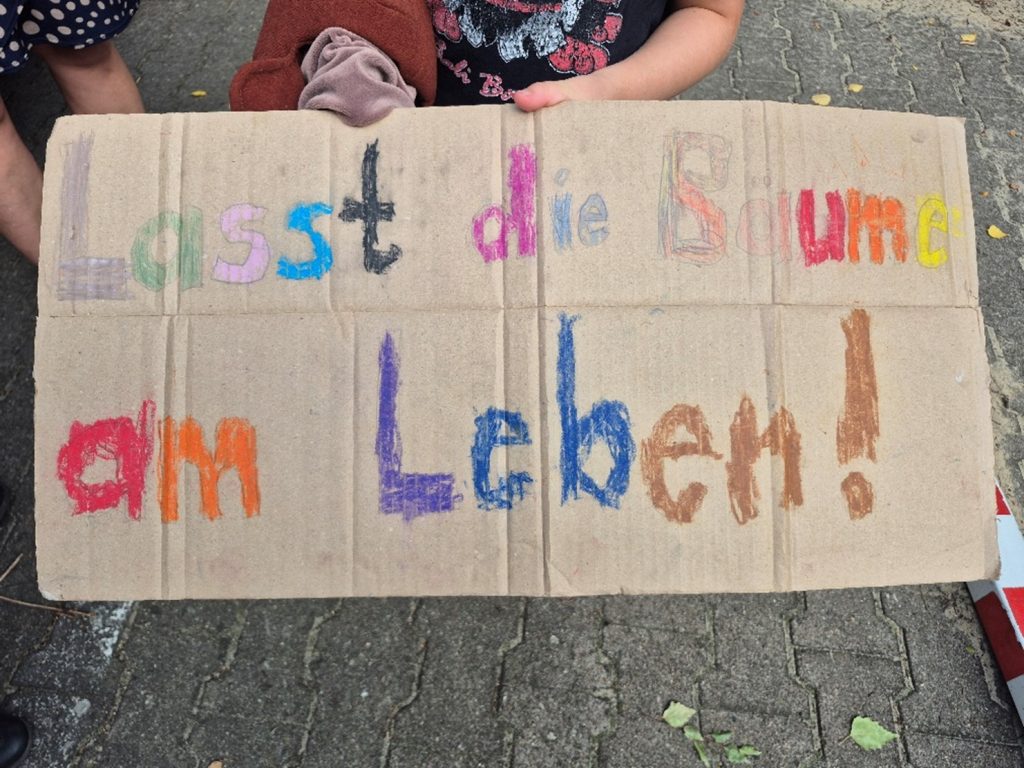 Lasst die Bäume
am Leben!